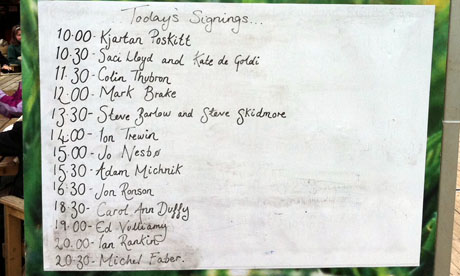 Today's Signings...
10:00 - Kjartan Poskitt
10.30 - Saci Lloyd and Kate de Goldi
11.30 - Colin Thubron
12:00 - Mark Brake
13:30 - Steve Barlow and Steve Skidmore
14:00 - Ion Trewin
15.00 - Jo Nesbø
15.30 - Adam Michnik
16:30 - Jon Ronson
18:30 - Carol Ann Duffy
19:00 - Ed Vulliamy
20.00 - Ian Rankin
20.30 - Michel Faber.